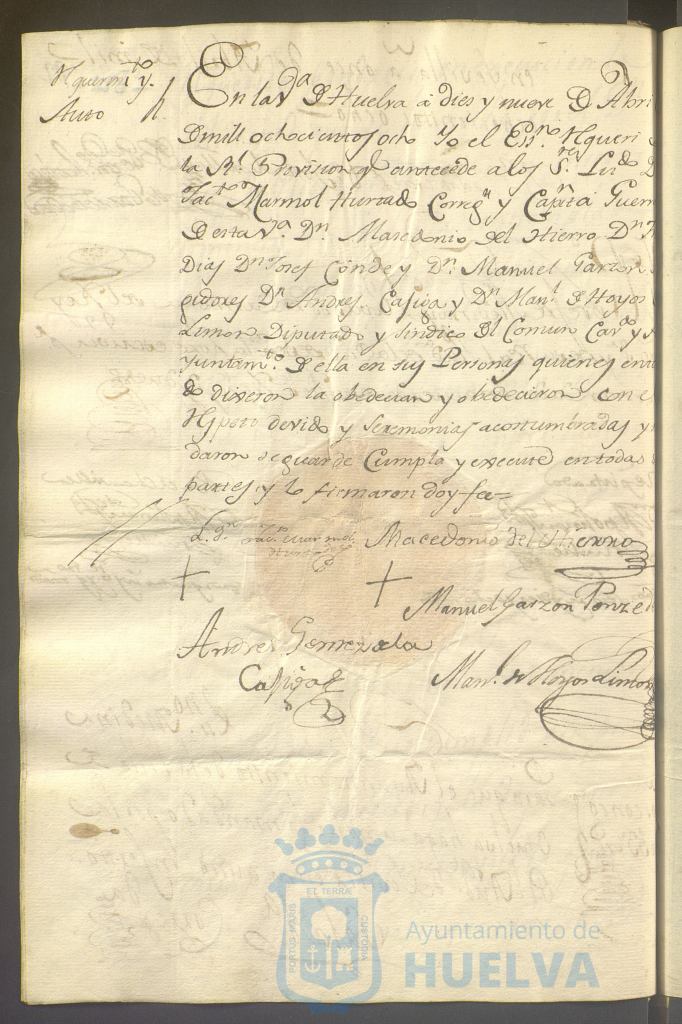 Rquerimto. y.
Auto
En la Va. D Huelva á dies y nueve D Abri
D mill ochocientos ocho Yo el Essno. Rqueri
la Rl. Provision q antecede a los Sres. Lizdo D
Jacto Marmol Hurtado Corregr y Capitn á Guerr
D esta Va. Dn. Macedonio del Hierro Dn
Dias Dn Josef Conde y Dn. Manuel Garzon
gidores Dn Andres Casiga y Dn Manl. D Hoyos
Limon Diputado y Sindico Del Comun Cavo y
yuntamto. D ella en sus Personas quienes ente
do dixeron la obedecian y obedecieron con e
Rspeto devido y seremonias acostumbradas y
daron se guarde Cumpla y execute en todas
partes y lo firmaron doy fee=
Macedonio del Hierro
Manuel Garzon Ponze d
Andres
Casiga
Manl. de Hoyos Limon
EL TERRÆ
PORTUS MARIS
CUSTODIA
Ayuntamiento de
HUELVA